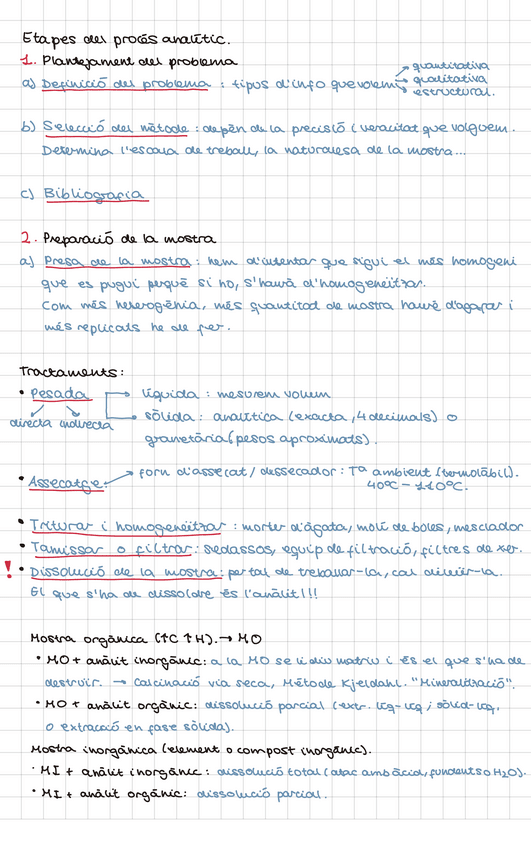 Etapes del procés analític.
1. Plantejament del problema
a) Definició del problema : tipus d'info que volem
quantitativa
qualitativa
estructural.
b) Selecció del mètode : depèn de la precisió i veracitat que volguem.
Determina l'escala de treball, la naturalesa de la mostra...
c) Bibliografia
2. Preparació de la mostra
a) Presa de la mostra : hem d'intentar que sigui el més homogeni
que es pugui perquè si no, s'haurà d'homogeneïtzar.
Com més heterogènia, més quantitat de mostra hauré d'agafar i
més replicats he de fer.
Tractaments:
• Pesada
líquida : mesurem volum
directa indirecta
sòlida : analítica (exacta, 4 decimals) o
granetària (pesos aproximats).
• Assecatge:
forn d'assecat / dessecador : Tª ambient (termolàbil).
40ºC - 110ºC.
• Triturar i homogeneïtzar : morter d'àgata, molí de boles, mesclador
• Tamissar o filtrar : sedassos, equip de filtració, filtres de xer.
! • Dissolució de la mostra : per tal de treballar-la, cal diluir-la.
El que s'ha de dissoldre és l'anàlit!!!
Mostra orgànica (↑C ↑H). → MO
• MO + anàlit inorgànic: a la MO se li diu matriu i és el que s'ha de
destruir. → Calcinació via seca, Mètode Kjeldahl. "Mineralització".
• MO + anàlit orgànic: dissolució parcial (extr. líq-líq ; sòlid-líq,
o extracció en fase sòlida).
Mostra inorgànica (element o compost inorgànic).
• MI + anàlit inorgànic: dissolució total (atac amb àcid, fundents o H2O).
• MI + anàlit orgànic: dissolució parcial.